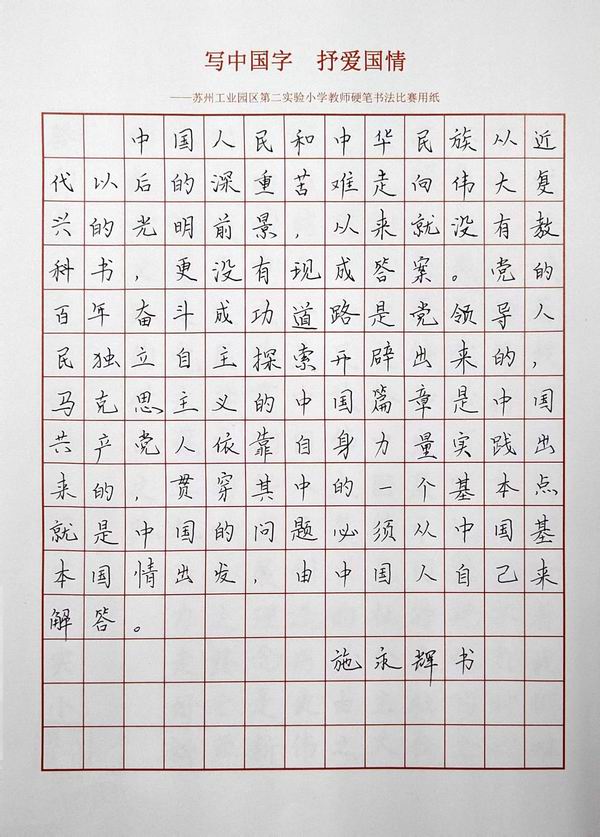 写中国字 抒爱国情
——苏州工业园区第二实验小学教师硬笔书法比赛用纸
中国人民和中华民族从近
代以后的深重苦难走向伟大复
兴的光明前景，以来就没有教
科书，更没有现成答案。党的
百年奋斗成功道路是党领导人
民独立自主探索开辟出来的，
马克思主义的中国篇章是中国
共产党人依靠自身力量实践出
来的，贯穿其中的一个基本点
就是中国的问题必须从中国基
本国情出发，由中国人自己来
解答。
施永辉书